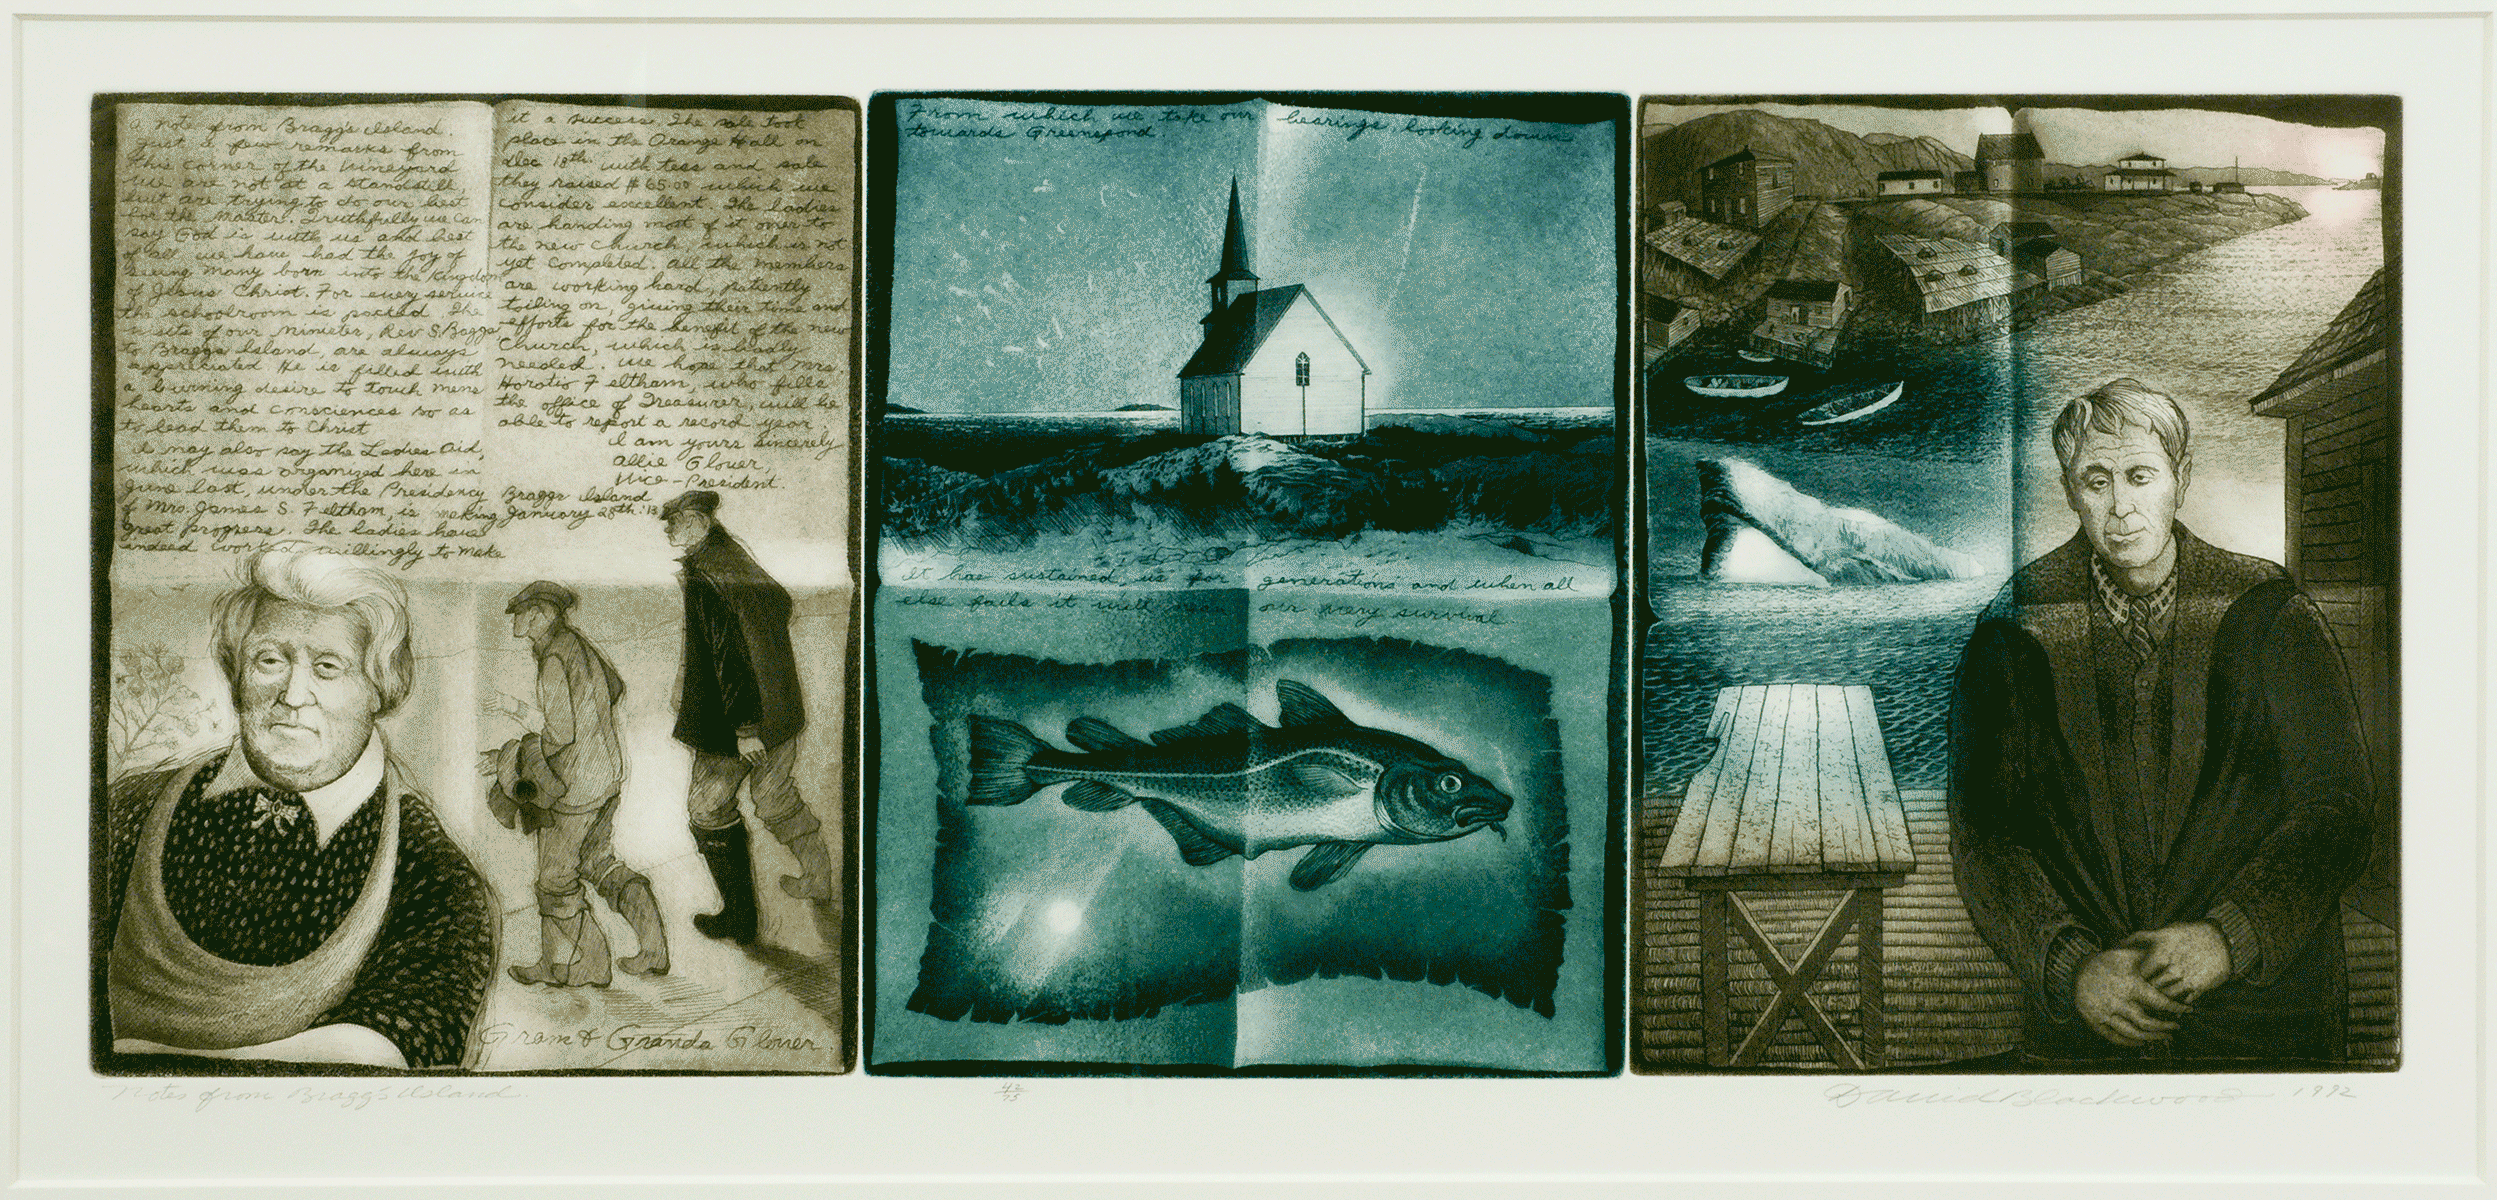 a note from Bragg's Island.
Just a few remarks from
this corner of the Vineyard
we are not at a standstill,
but are trying to do our best
for the Master. Truthfully we can
say God is with us and best
of all we have had the joy of
seeing many born into the Kingdom
of Jesus Christ. For every service
the schoolroom is packed. The
visits of our Minister, Rev S. Baggs
to Braggs Island, are always
appreciated He is filled with
a burning desire to touch mens
hearts and consciences so as
to lead them to Christ
I may also say the Ladies Aid,
which was organized here in
June last, under the Presidency
of Mrs. James S. Feltham, is making
great progress. The ladies have
indeed worked willingly to make
it a success. The sale took
place in the Orange Hall on
Dec 18th. with teas and sale
they raised $65.00 which we
consider excellent. The ladies
are handing most of it over to
the new Church, which is not
yet completed. All the members
are working hard, patiently
toiling on, giving their time and
efforts for the benefit of the new
Church, which is badly
needed. We hope that Mrs.
Horatio Feltham, who fills
the office of Treasurer, will be
able to report a record year.
I am yours sincerely
Allie Glover,
Vice-President.
Braggs Island
January 28th: 13
Gram & Granda Glover.
From which we take our bearings, looking down
towards Greenspond.
It has sustained us for generations and when all
else fails it will mean our very survival.
Notes from Bragg's Island.
42/75
David Blackwood 1992